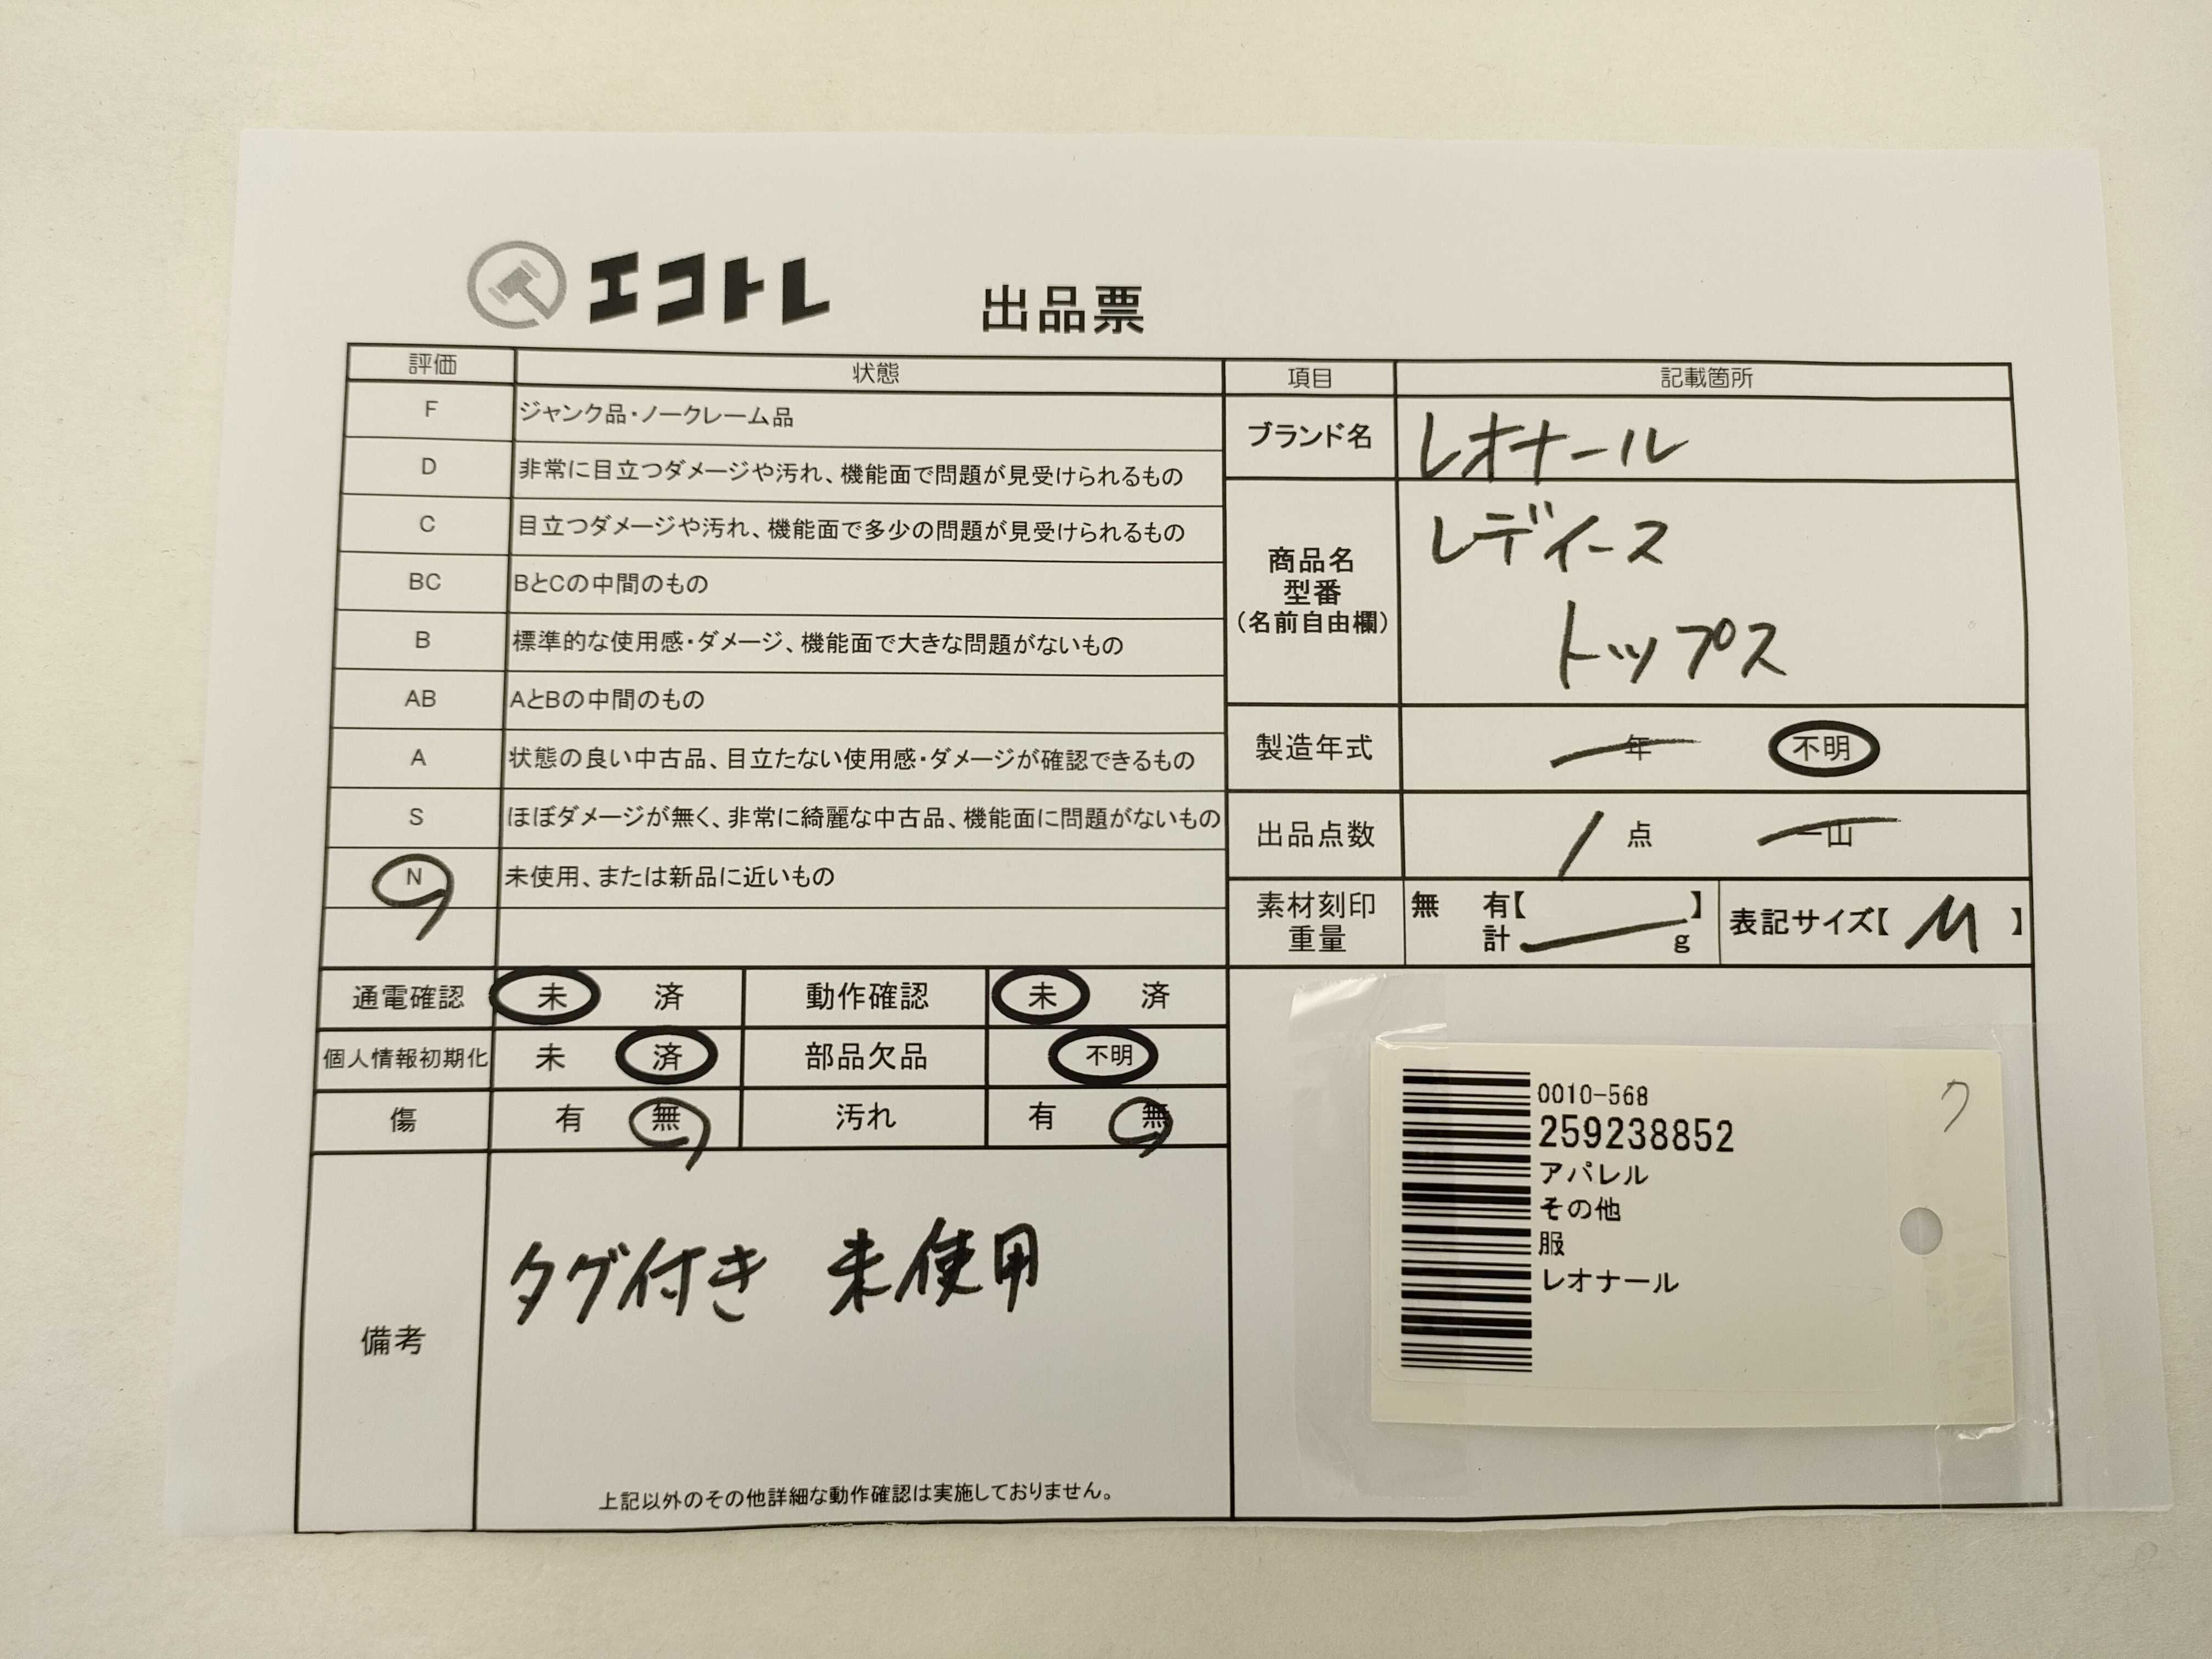 エコトレ 出品票
評価 状態
F ジャンク品・ノークレーム品
D 非常に目立つダメージや汚れ、機能面で問題が見受けられるもの
C 目立つダメージや汚れ、機能面で多少の問題が見受けられるもの
BC BとCの中間のもの
B 標準的な使用感・ダメージ、機能面で大きな問題がないもの
AB AとBの中間のもの
A 状態の良い中古品、目立たない使用感・ダメージが確認できるもの
S ほぼダメージが無く、非常に綺麗な中古品、機能面に問題がないもの
N 未使用、または新品に近いもの
通電確認 未 済 動作確認 未 済
個人情報初期化 未 済 部品欠品 不明
傷 有 無 汚れ 有 無
備考
タグ付き 未使用
上記以外のその他詳細な動作確認は実施しておりません。
項目 記載箇所
ブランド名 レオナール
商品名
型番
(名前自由欄)
レディース
トップス
製造年式 年 不明
出品点数 1 点 一山
素材刻印 無 有【 】
重量 計 g
表記サイズ【 M 】
0010-568
259238852
アパレル
その他
服
レオナール